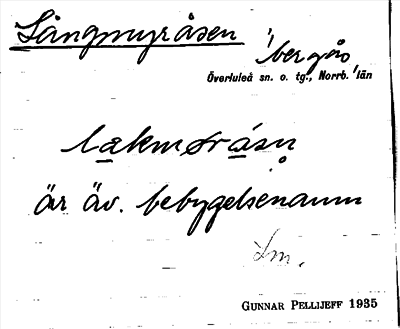 Långmyråsen 'bergås'
Överluleå sn. o. tg., Norrb. län
lakmøråsn
är äv. bebyggelsenamn
Lm.
GUNNAR PELLIJEFF 1935